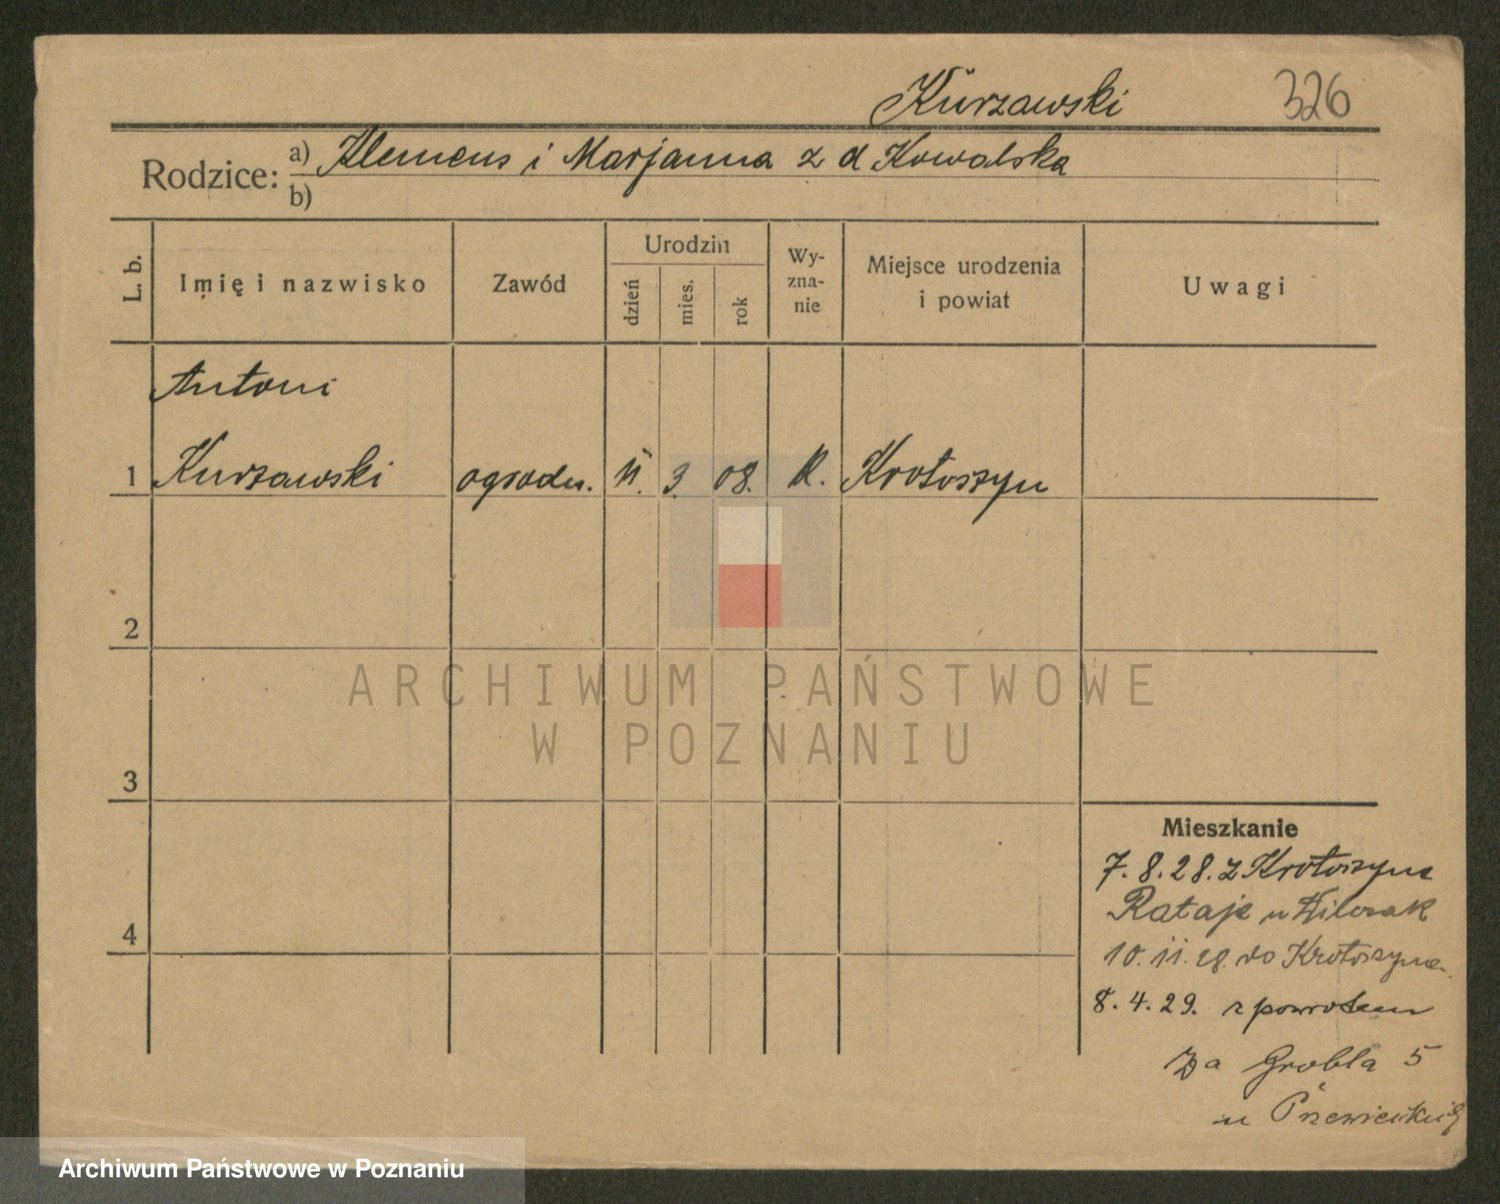 Kurzawski 326
Rodzice: a) Klemens i Marjanna z d Kowalska
b)
L. b. Imię i nazwisko Zawód Urodzin dzień mies. rok Wyznanie Miejsce urodzenia i powiat Uwagi
Antoni
1 Kurzawski ogrodn. 11. 3. 08. R. Krotoszyn
2
ARCHIWUM PAŃSTWOWE
W POZNANIU
3
Mieszkanie
7. 8. 28. z Krotoszyna
Rataje u Wilczak
4
10. 11. 28. do Krotoszyna
8. 4. 29. z powrotem
Za Grobla 5
u
Archiwum Państwowe w Poznaniu